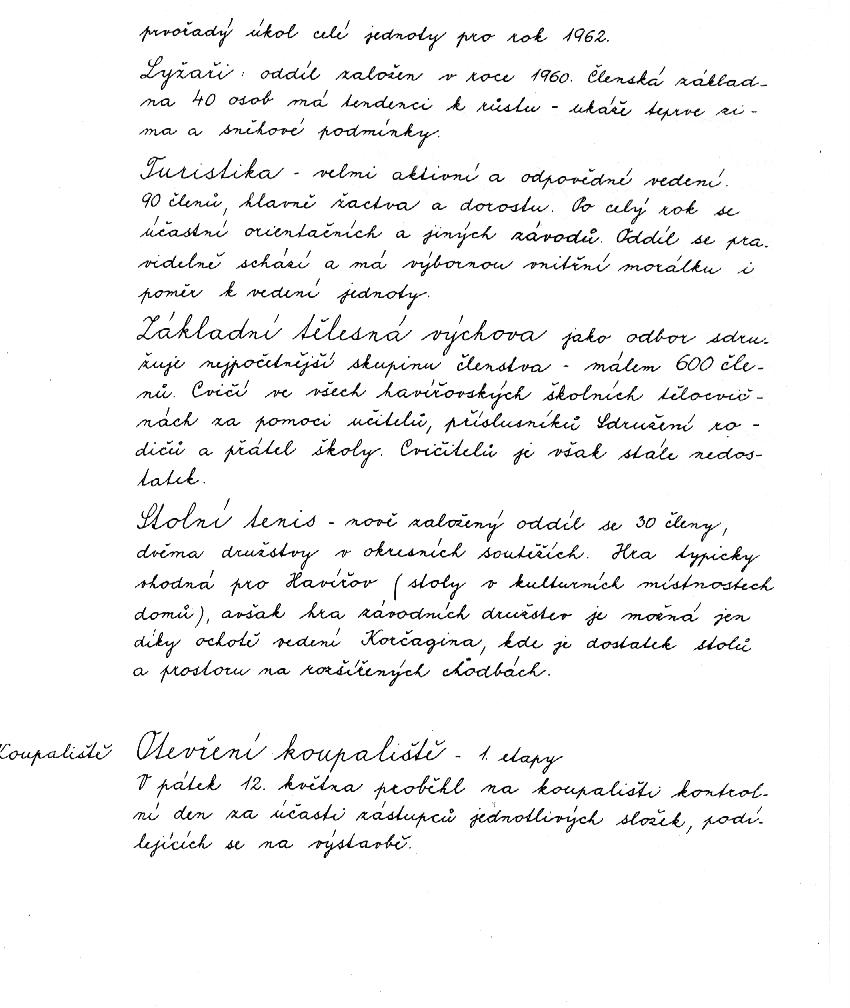 prvořadý úkol celé jednoty pro rok 1962.
Lyžaři: oddíl založen v roce 1960. Členská základ-
na 40 osob má tendenci k růstu - ukáže teprve zi-
ma a sněhové podmínky.
Turistika - velmi aktivní a odpovědné vedení.
90 členů, hlavně žactva a dorostu. Po celý rok se
účastní orientačních a jiných závodů. Oddíl se pra-
videlně schází a má výbornou vnitřní morálku i
poměr k vedení jednoty.
Základní tělesná výchova jako odbor sdru-
žuje nejpočetnější skupinu členstva - málem 600 čle-
nů. Cvičí ve všech havířovských školních tělocvič-
nách za pomoci učitelů, příslusníků Sdružení ro-
dičů a přátel školy. Cvičitelů je však stále nedos-
tatek.
Stolní tenis - nově založený oddíl se 30 členy,
dvěma družstvy v okresních soutěžích. Hra typicky
vhodná pro Havířov (stoly v kulturních místnostech
domů), avšak hra závodních družstev je možná jen
díky ochotě vedení Korčagina, kde je dostatek stolů
a prostoru na rozšířených chodbách.
Koupaliště Otevření koupaliště - 1. etapy
V pátek 12. května proběhl na koupališti kontrol-
ní den za účasti zástupců jednotlivých složek, podí-
lejících se na výstavbě.